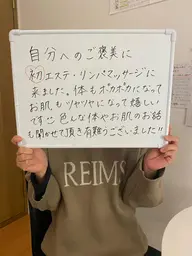 自分へのご褒美に
初エステ・リンパマッサージに
来ました。体もポカポカになって
お肌もツヤツヤになって嬉しい
です☺色んな体やお肌のお話
も聞かせて頂き有難うございました!!
REIMS